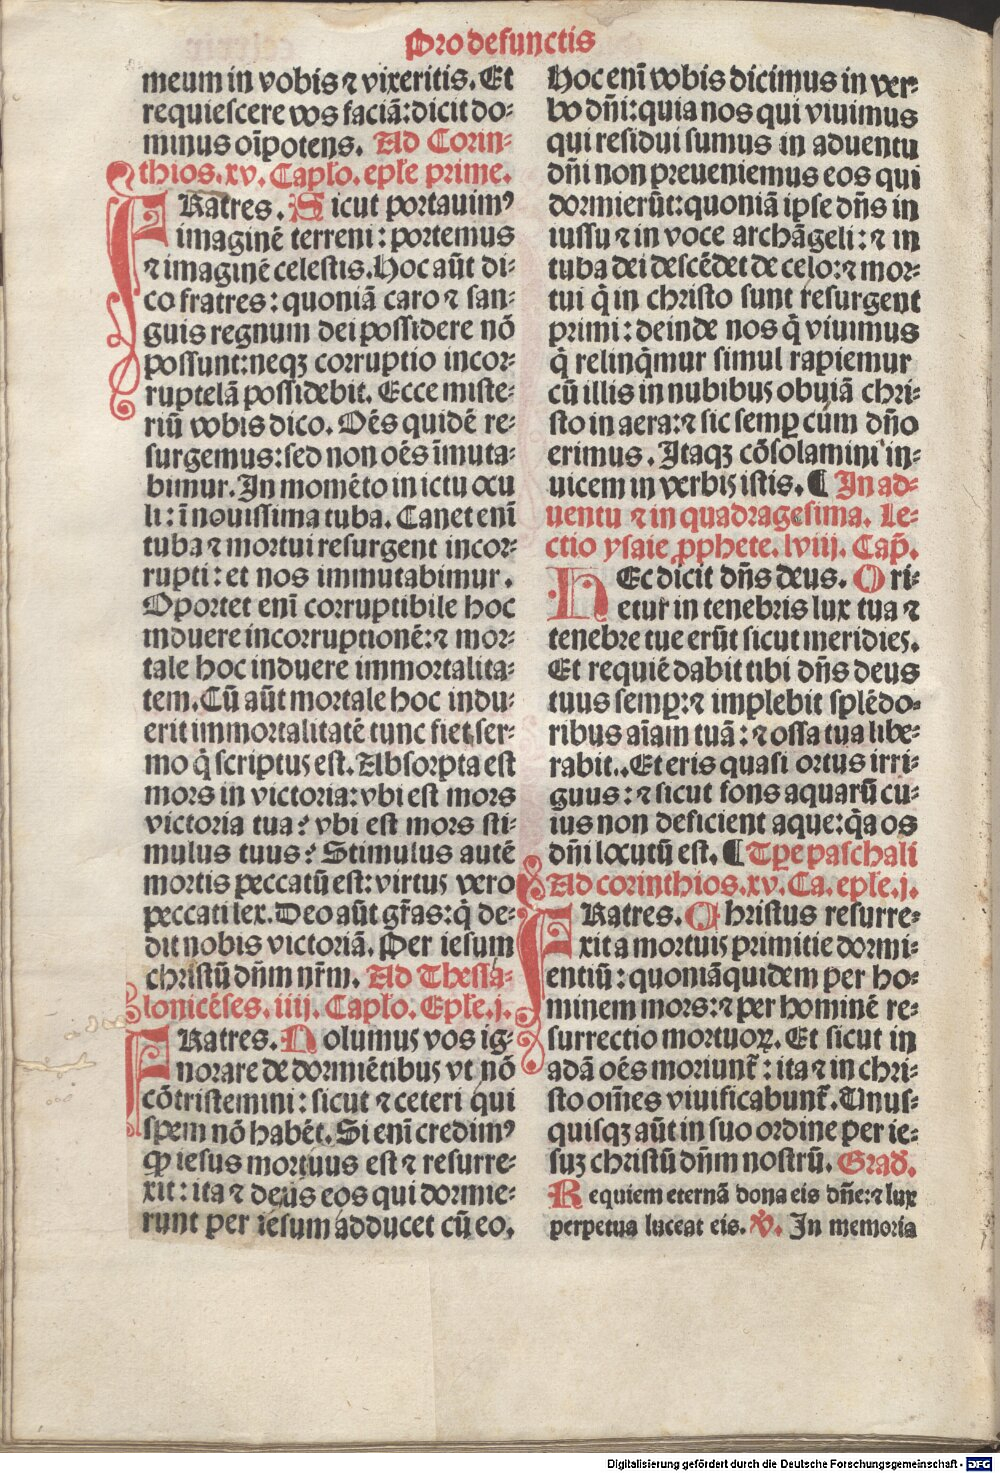 Pro defunctis
meum in vobis ⁊ vixeritis. Et
requiescere vos faciā: dicit do-
minus oīpotens. Ad Corin-
thios. xv. Capło. epłe prime.
FRatres. Sicut portauimꝰ
imaginē terreni: portemus
⁊ imaginē celestis. Hoc aūt di-
co fratres: quoniā caro ⁊ san-
guis regnum dei possidere nō
possunt: neqꝫ corruptio incor-
ruptelā possidebit. Ecce miste-
riū vobis dico. Oēs quidē re-
surgemus: sed non oēs īmuta-
bimur. In momēto in ictu ocu
li: ī nouissima tuba. Canet enī
tuba ⁊ mortui resurgent incor-
rupti: et nos immutabimur.
Oportet enī corruptibile hoc
induere incorruptionē: ⁊ mor-
tale hoc induere immortalita-
tem. Cū aūt mortale hoc indu-
erit immortalitatē tunc fiet ser-
mo q̄ scriptus est. Absorpta est
mors in victoria: vbi est mors
victoria tua? vbi est mors sti-
mulus tuus? Stimulus autē
mortis peccatū est: virtus vero
peccati lex. Deo aūt gr̄as: q̄ de-
dit nobis victoriā. Per iesum
christū dn̄m nr̄m. Ad Thessa-
lonicēses. iiij. Capło. Epłe. j.
FRatres. Nolumus vos ig-
norare de dormiētibus vt nō
cōtristemini: sicut ⁊ ceteri qui
spem nō habēt. Si enī credimꝰ
ꝙ iesus mortuus est ⁊ resurre-
xit: ita ⁊ deus eos qui dormie-
runt per iesum adducet cū eo.
Hoc enī vobis dicimus in ver-
bo dn̄i: quia nos qui viuimus
qui residui sumus in aduentu
dn̄i non preueniemus eos qui
dormierūt: quoniā ipse dn̄s in
iussu ⁊ in voce archāgeli: ⁊ in
tuba dei descēdet de celo: ⁊ mor-
tui q̄ in christo sunt resurgent
primi: deinde nos q̄ viuimus
q̄ relinq̄mur simul rapiemur
cū illis in nubibus obuiā chri-
sto in aera: ⁊ sic semꝑ cum dn̄o
erimus. Itaqꝫ cōsolamini in-
uicem in verbis istis. ¶ In ad-
uentu ⁊ in quadragesima. Le-
ctio ysaie ꝓphete. lviij. Cap̄.
HEc dicit dn̄s deus. Ori-
etur in tenebris lux tua ⁊
tenebre tue erūt sicut meridies.
Et requiē dabit tibi dn̄s deus
tuus semꝑ: ⁊ implebit splēdo-
ribus aīam tuā: ⁊ ossa tua libe-
rabit.. Et eris quasi ortus irri-
guus: ⁊ sicut fons aquarū cu-
ius non deficient aque: q̄a os
dn̄i locutū est. ¶ Tꝑe paschali
Ad corinthios. xv. Ca. epłe. j.
FRatres. Christus resurre-
xit a mortuis primitie dormi-
entiū: quoniā quidem per ho-
minem mors: ⁊ per hominē re-
surrectio mortuoꝝ. Et sicut in
adā oēs moriunt̄: ita ⁊ in chri-
sto om̄es viuificabunt̄. Unus-
quisqꝫ aūt in suo ordine per ie-
suꝫ christū dn̄m nostrū. Grad̄.
Requiem eternā dona eis dn̄e: ⁊ lux
perpetua luceat eis. ℣. In memoria
Digitalisierung gefördert durch die Deutsche Forschungsgemeinschaft - DFG